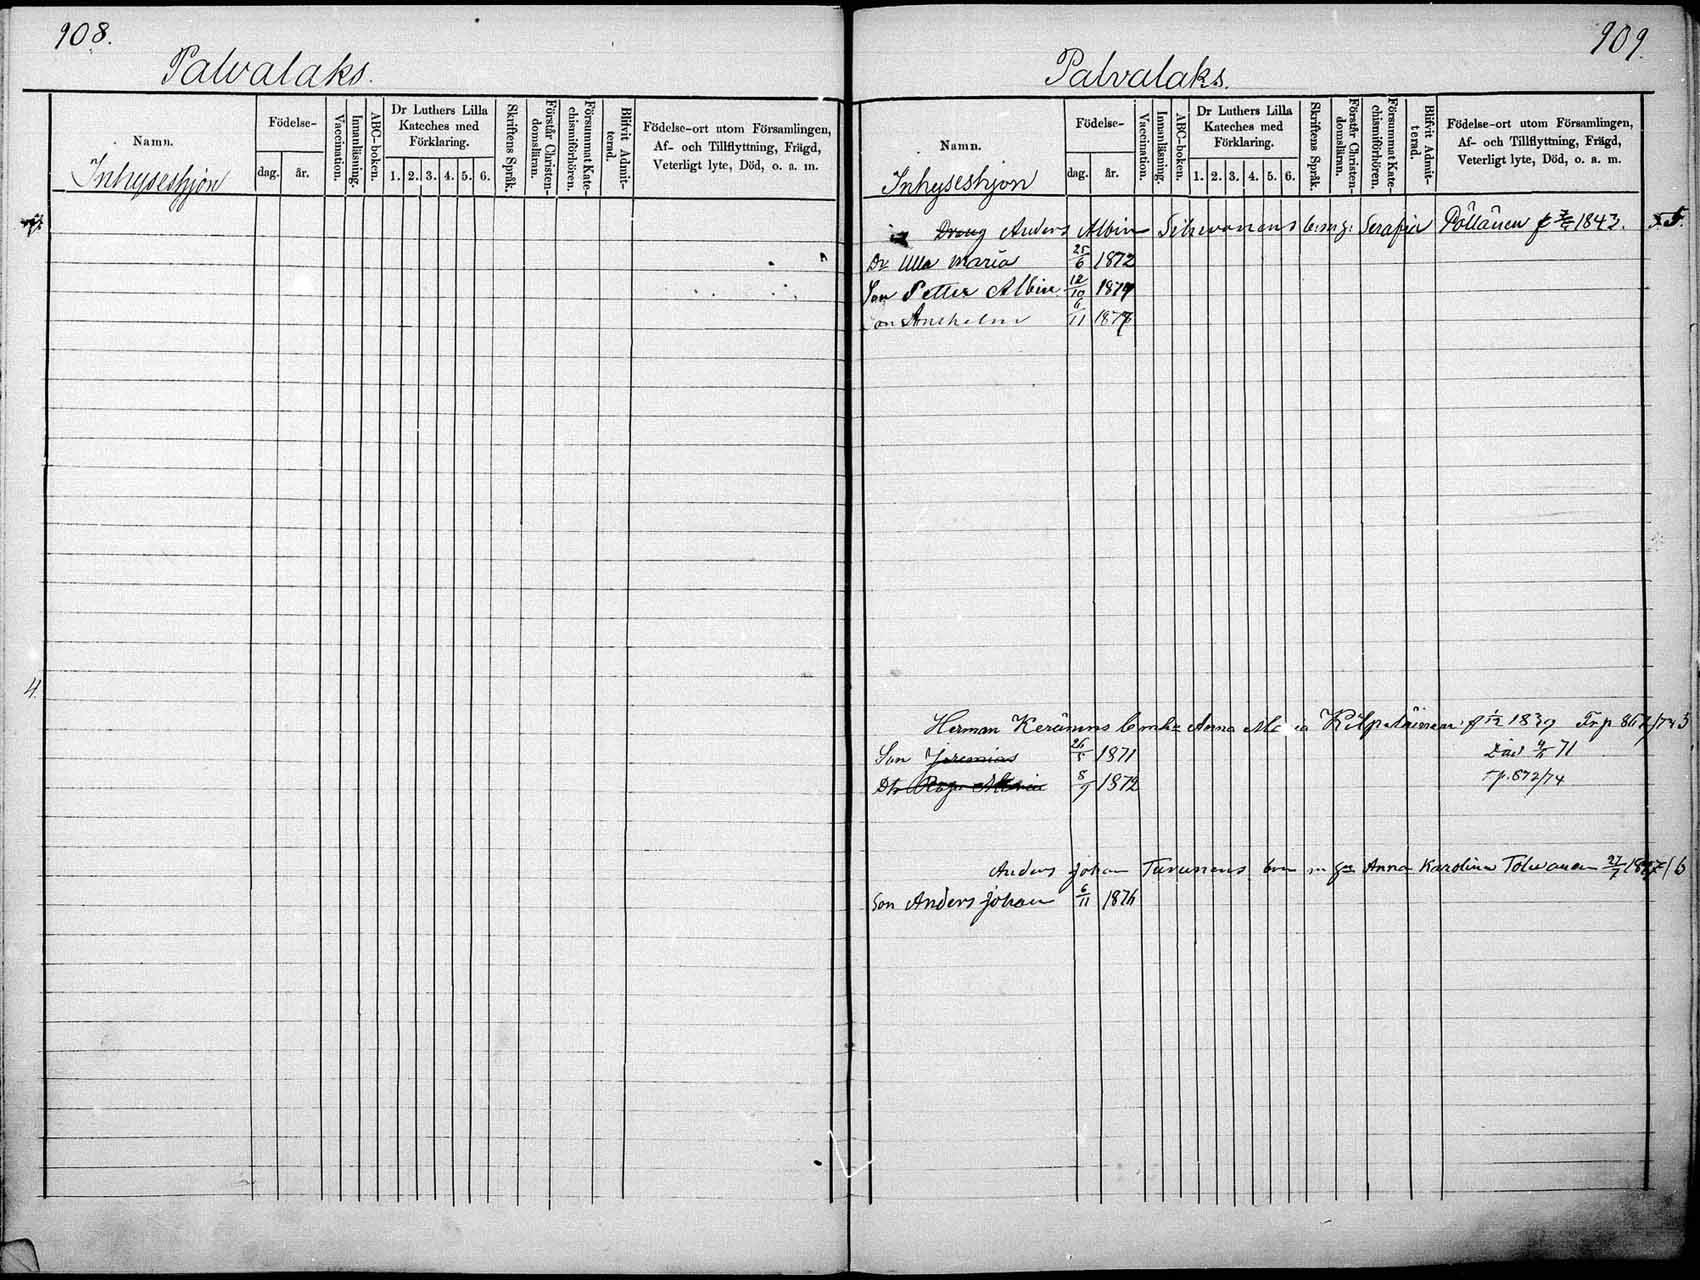 908.
Palvalaks.
Namn.
Födelse-
dag.
år.
Vaccination.
Innanläsning.
ABC-boken.
Dr Luthers Lilla
Kateches med
Förklaring.
1. 2. 3. 4. 5. 6.
Skriftens Språk.
Förstår Christen-
domsläran.
Försummat Kate-
chismiförhören.
Blifvit Admit-
terad.
Födelse-ort utom Församlingen,
Af- och Tillflyttning, Frägd,
Veterligt lyte, Död, o. a. m.
Inhyseshjon
4.
909.
Palvalaks.
Namn.
Födelse-
dag.
år.
Vaccination.
Innanläsning.
ABC-boken.
Dr Luthers Lilla
Kateches med
Förklaring.
1. 2. 3. 4. 5. 6.
Skriftens Språk.
Förstår Christen-
domsläran.
Försummat Kate-
chismiförhören.
Blifvit Admit-
terad.
Födelse-ort utom Församlingen,
Af- och Tillflyttning, Frägd,
Veterligt lyte, Död, o. a. m.
Inhyseshjon
Dräng Anders Albin Sihvonens Serafia Pöllänen 1843.
Dr Ulla Maria 25/6 1872
Son Petter Albin 12/10 1874
Son Anshelm 6/11 1877
Herman Keränens Anna Kilpeläinen 1839
Son Jeremias 26/5 1871 Död 71
Dtr 8/9 1872 872/74
Anders Johan Turunens Anna Karolina Tolvanen 27/7
Son Anders Johan 6/11 1876